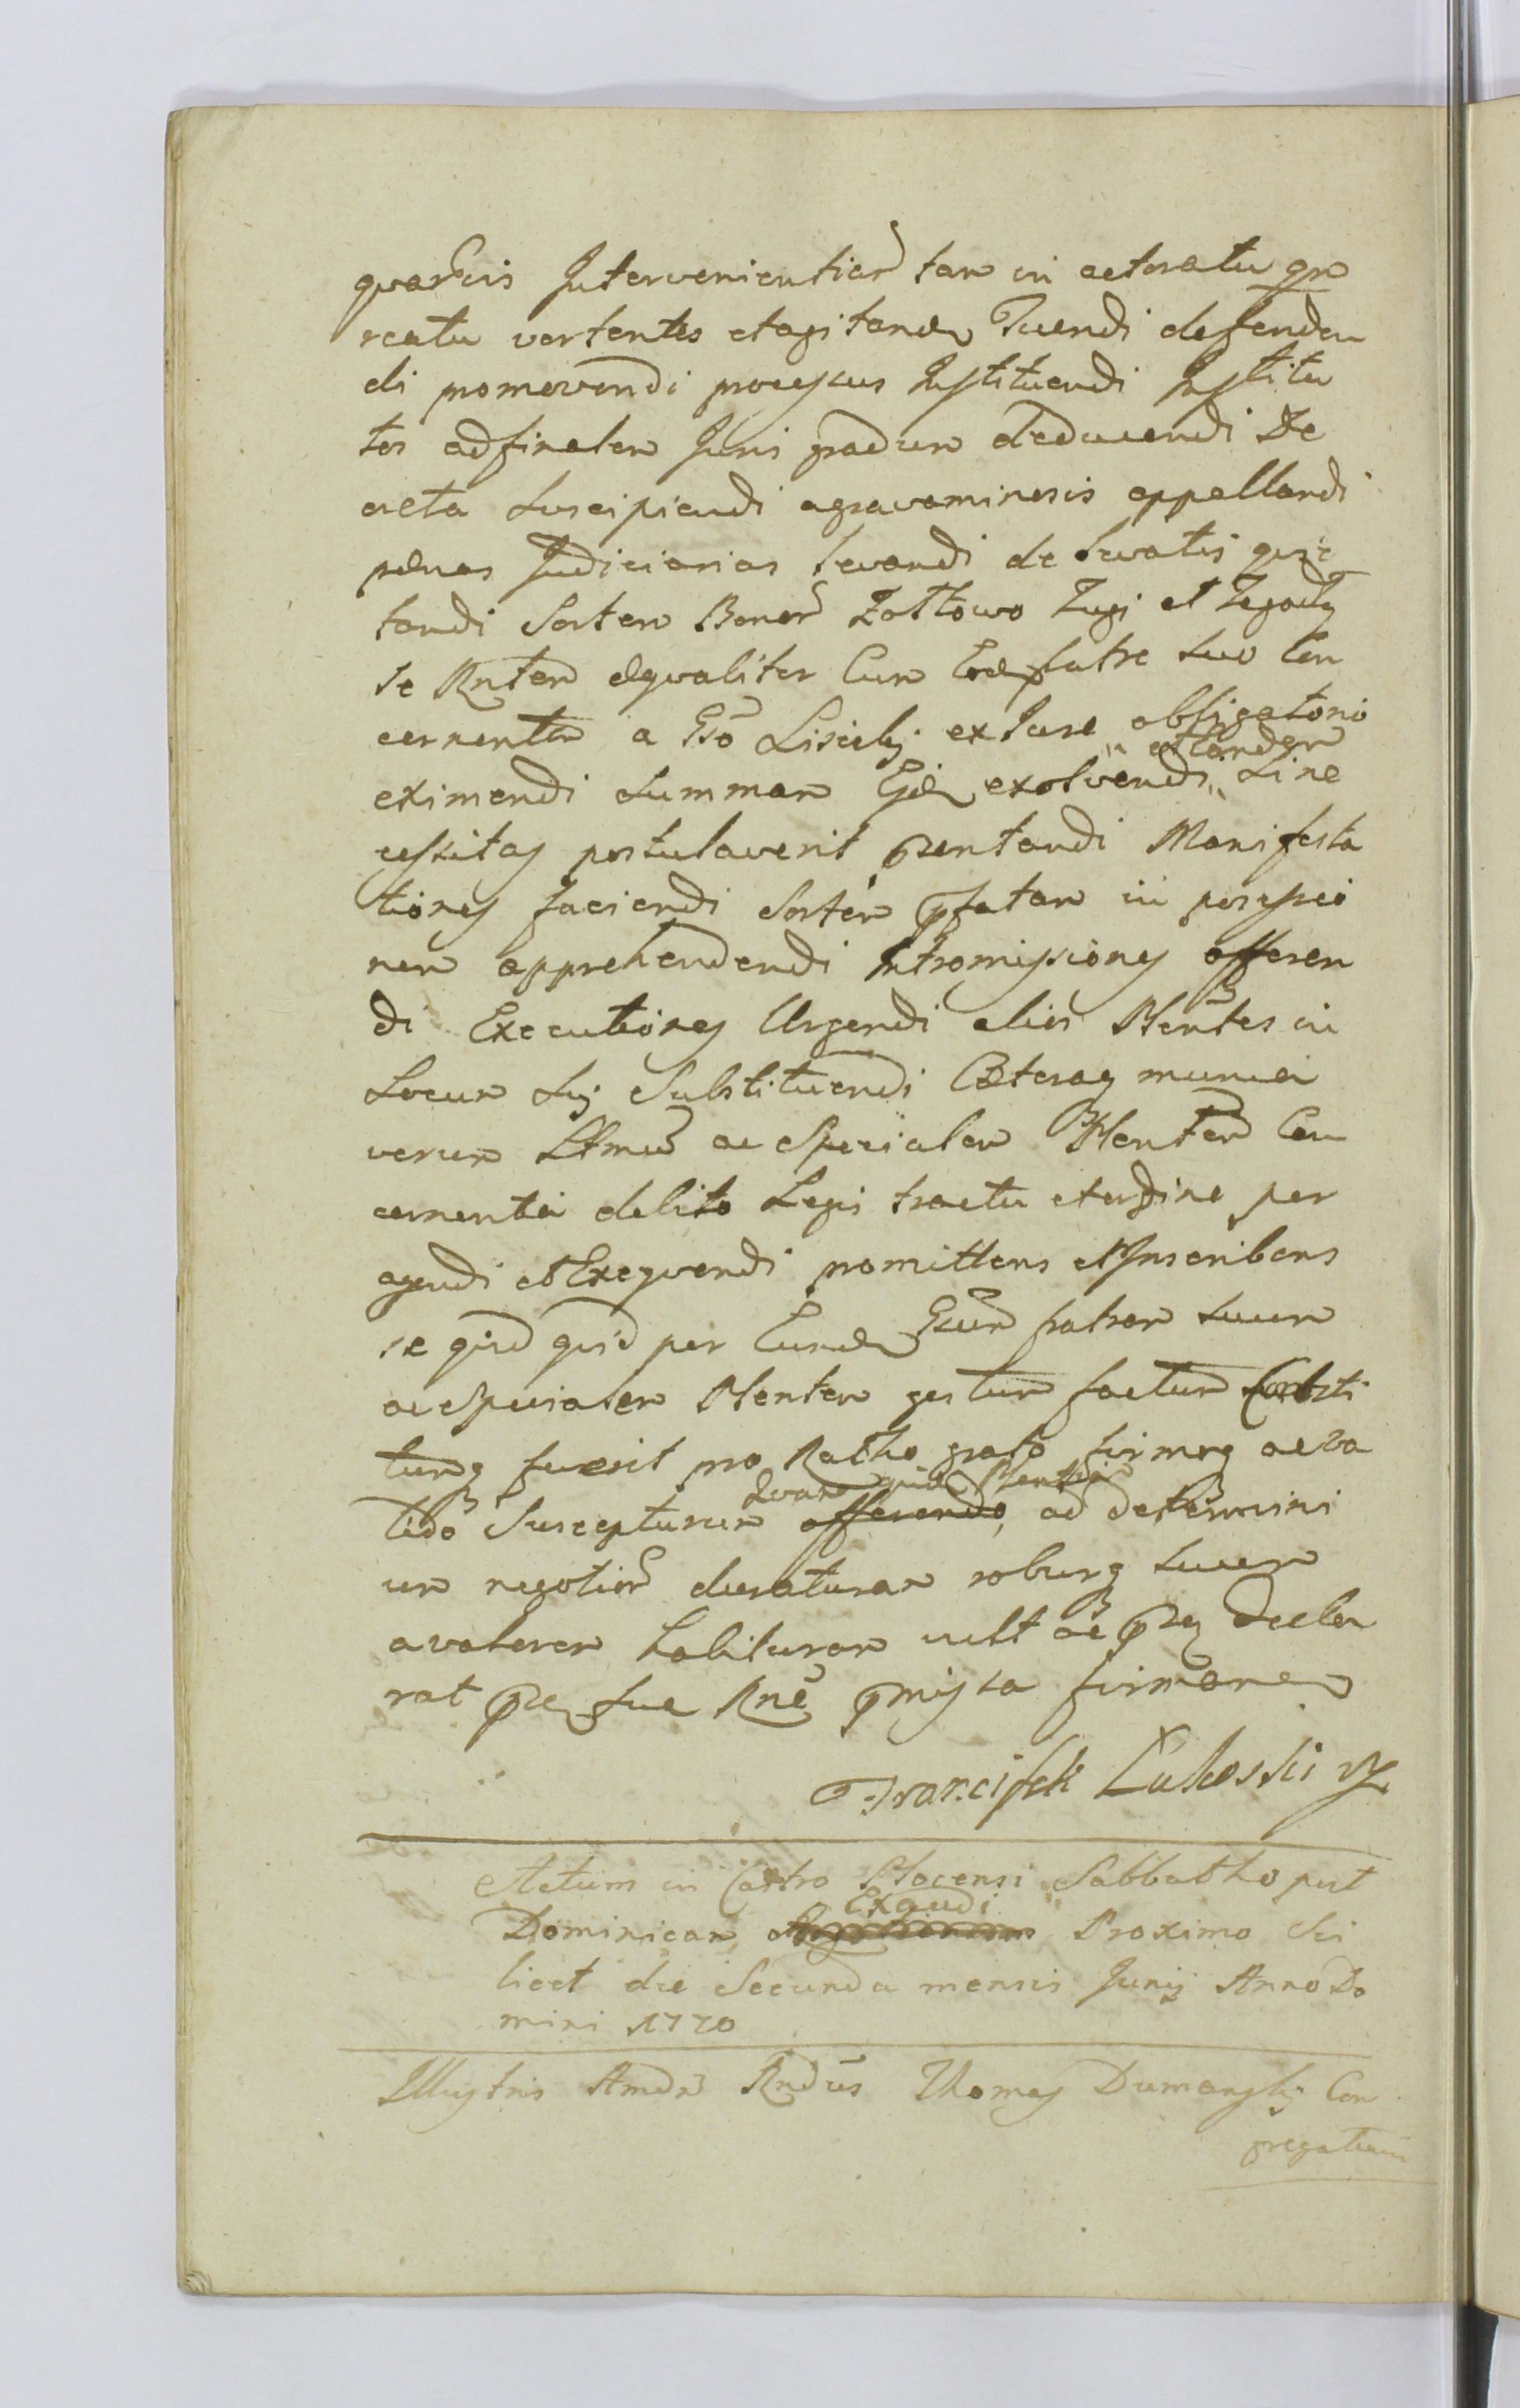 quarvis Intervenientiar tam in actoratu qm
reatu vertentes et agitandu Tuendi defenden
di promovendi processus Instituendi Institu
tos ad finalem Juris gradum deducendi De
creta suscipiendi agravaminosis appellandi
pænas Judiciarias levandi de levatis quie
tandi Sortem Bonor Zottowo Lugi et Zegoty
se Rntem æqvaliter Cum fratre suo Con
cernentem a Gso Lisicky ex Jure obligatorio
eximendi summam exolvendi et tandem si ne
cessitas postulaverit pzentandi Manifesta
tiones faciendi Sortem pfatam in possessio
nem apprehendendi Intromissiones offeren
di Executiones Urgendi alios Plentes in
Locum sui Substituendi Cæteraq munia
verum Ltmu ac Specialem Plentem Con
cernentia debito Legis tractu et ordine per
agendi et Exeqvendi promittens et Inscribens
se qisd qisd per Eunde Gsum fratrem suum
ac Specialem Plentem gestum factum Consti
tumq fuerit pro Ratho grato firmoq ac va
lido Suscepturum offerendo ad determini
um negotior duraturam roburq suum
a valorem habituram vult ac decla
rat pse sue Rne pmissa firmane
Francisek Łukoski
Actum in Castro Plocensi Sabbatho post
Dominicam Exaudi Proximo Sci
licet die Secunda mensis Junij Anno Do
mini 1770
Illustris Amdn Rndus Thomas Dumanski Con
gregationis